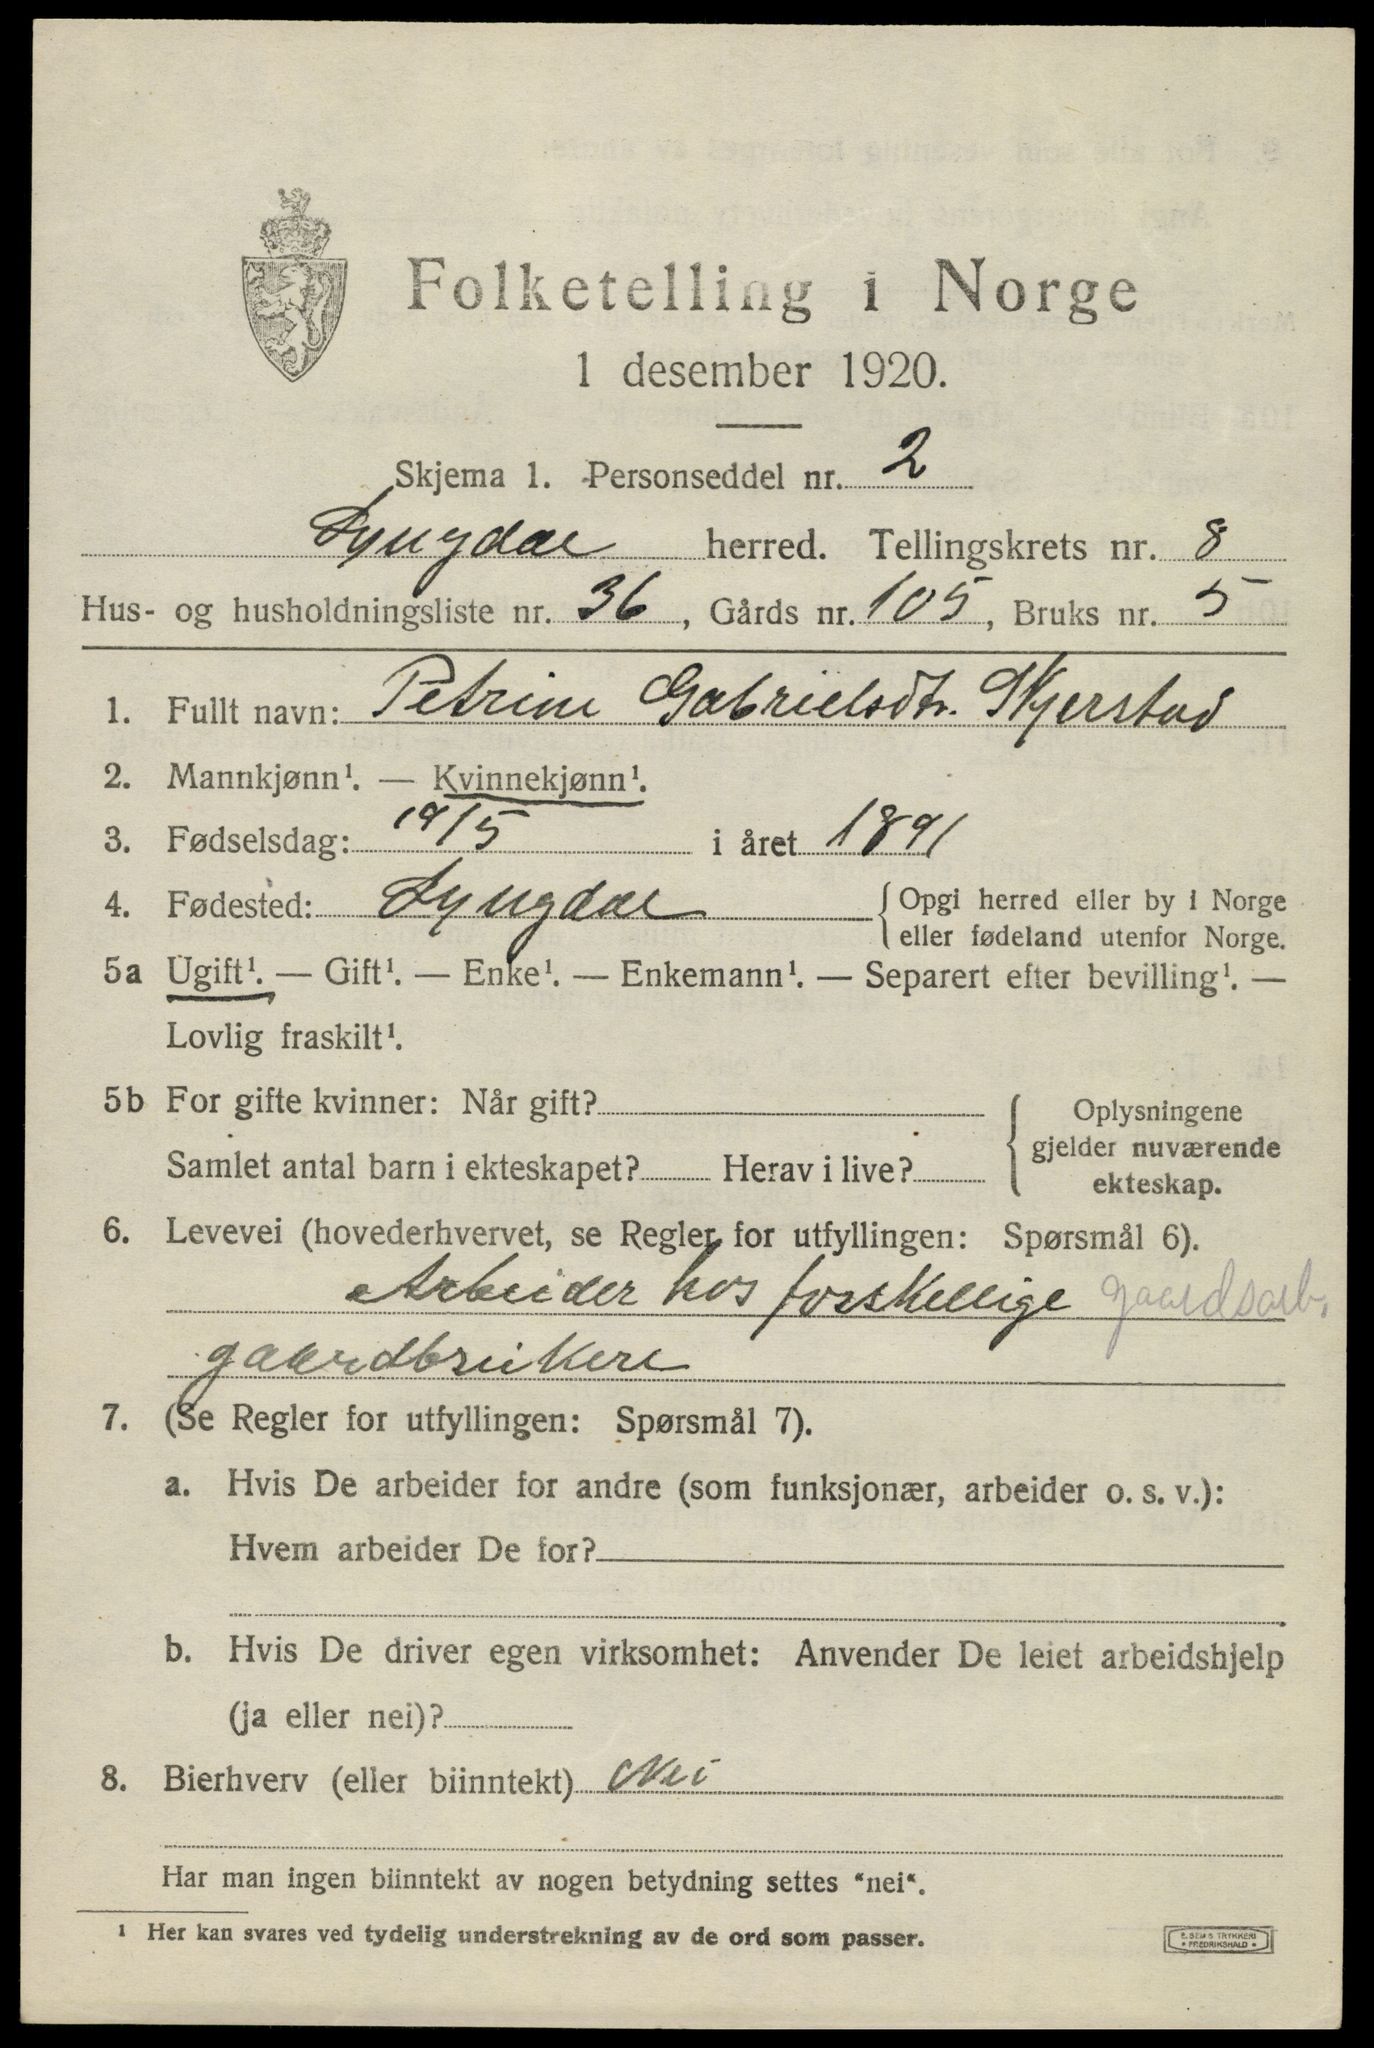 Folketelling i Norge
1 desember 1920.
Skjema 1. Personseddel nr. 2
Lyngdal herred. Tellingskrets nr. 8
Hus- og husholdningsliste nr. 36, Gårds nr. 105, Bruks nr. 5
1. Fullt navn: Petrine Gabrielsdtr. Skjerstad
2. Mannkjønn¹. — Kvinnekjønn¹.
3. Fødselsdag: 19/5 i året 1891
4. Fødested: Lyngdal {Opgi herred eller by i Norge
eller fødeland utenfor Norge.
5a Ugift¹. — Gift¹. — Enke¹. — Enkemann¹. — Separert efter bevilling¹. —
Lovlig fraskilt¹.
5b For gifte kvinner: Når gift?
Samlet antal barn i ekteskapet? Herav i live?
{Oplysningene
gjelder nuværende
ekteskap.
6. Levevei (hovederhvervet, se Regler for utfyllingen: Spørsmål 6).
Arbeider hos forskellige gaardsarb.
gaardbrukere
7. (Se Regler for utfyllingen: Spørsmål 7).
a. Hvis De arbeider for andre (som funksjonær, arbeider o. s. v.):
Hvem arbeider De for?
b. Hvis De driver egen virksomhet: Anvender De leiet arbeidshjelp
(ja eller nei)?
8. Bierhverv (eller biinntekt) Nei
Har man ingen biinntekt av nogen betydning settes "nei".
¹ Her kan svares ved tydelig understrekning av de ord som passer.
E. SEM'S TRYKKERI
• FREDRIKSHALD •